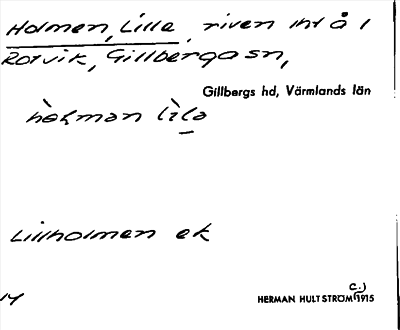 Holmen, Lilla, riven int å i
Rotvik, Gillberga sn,
Gillbergs hd, Värmlands län
Lillholmen ek
14
C.)
HERMAN HULTSTRÖM 1915